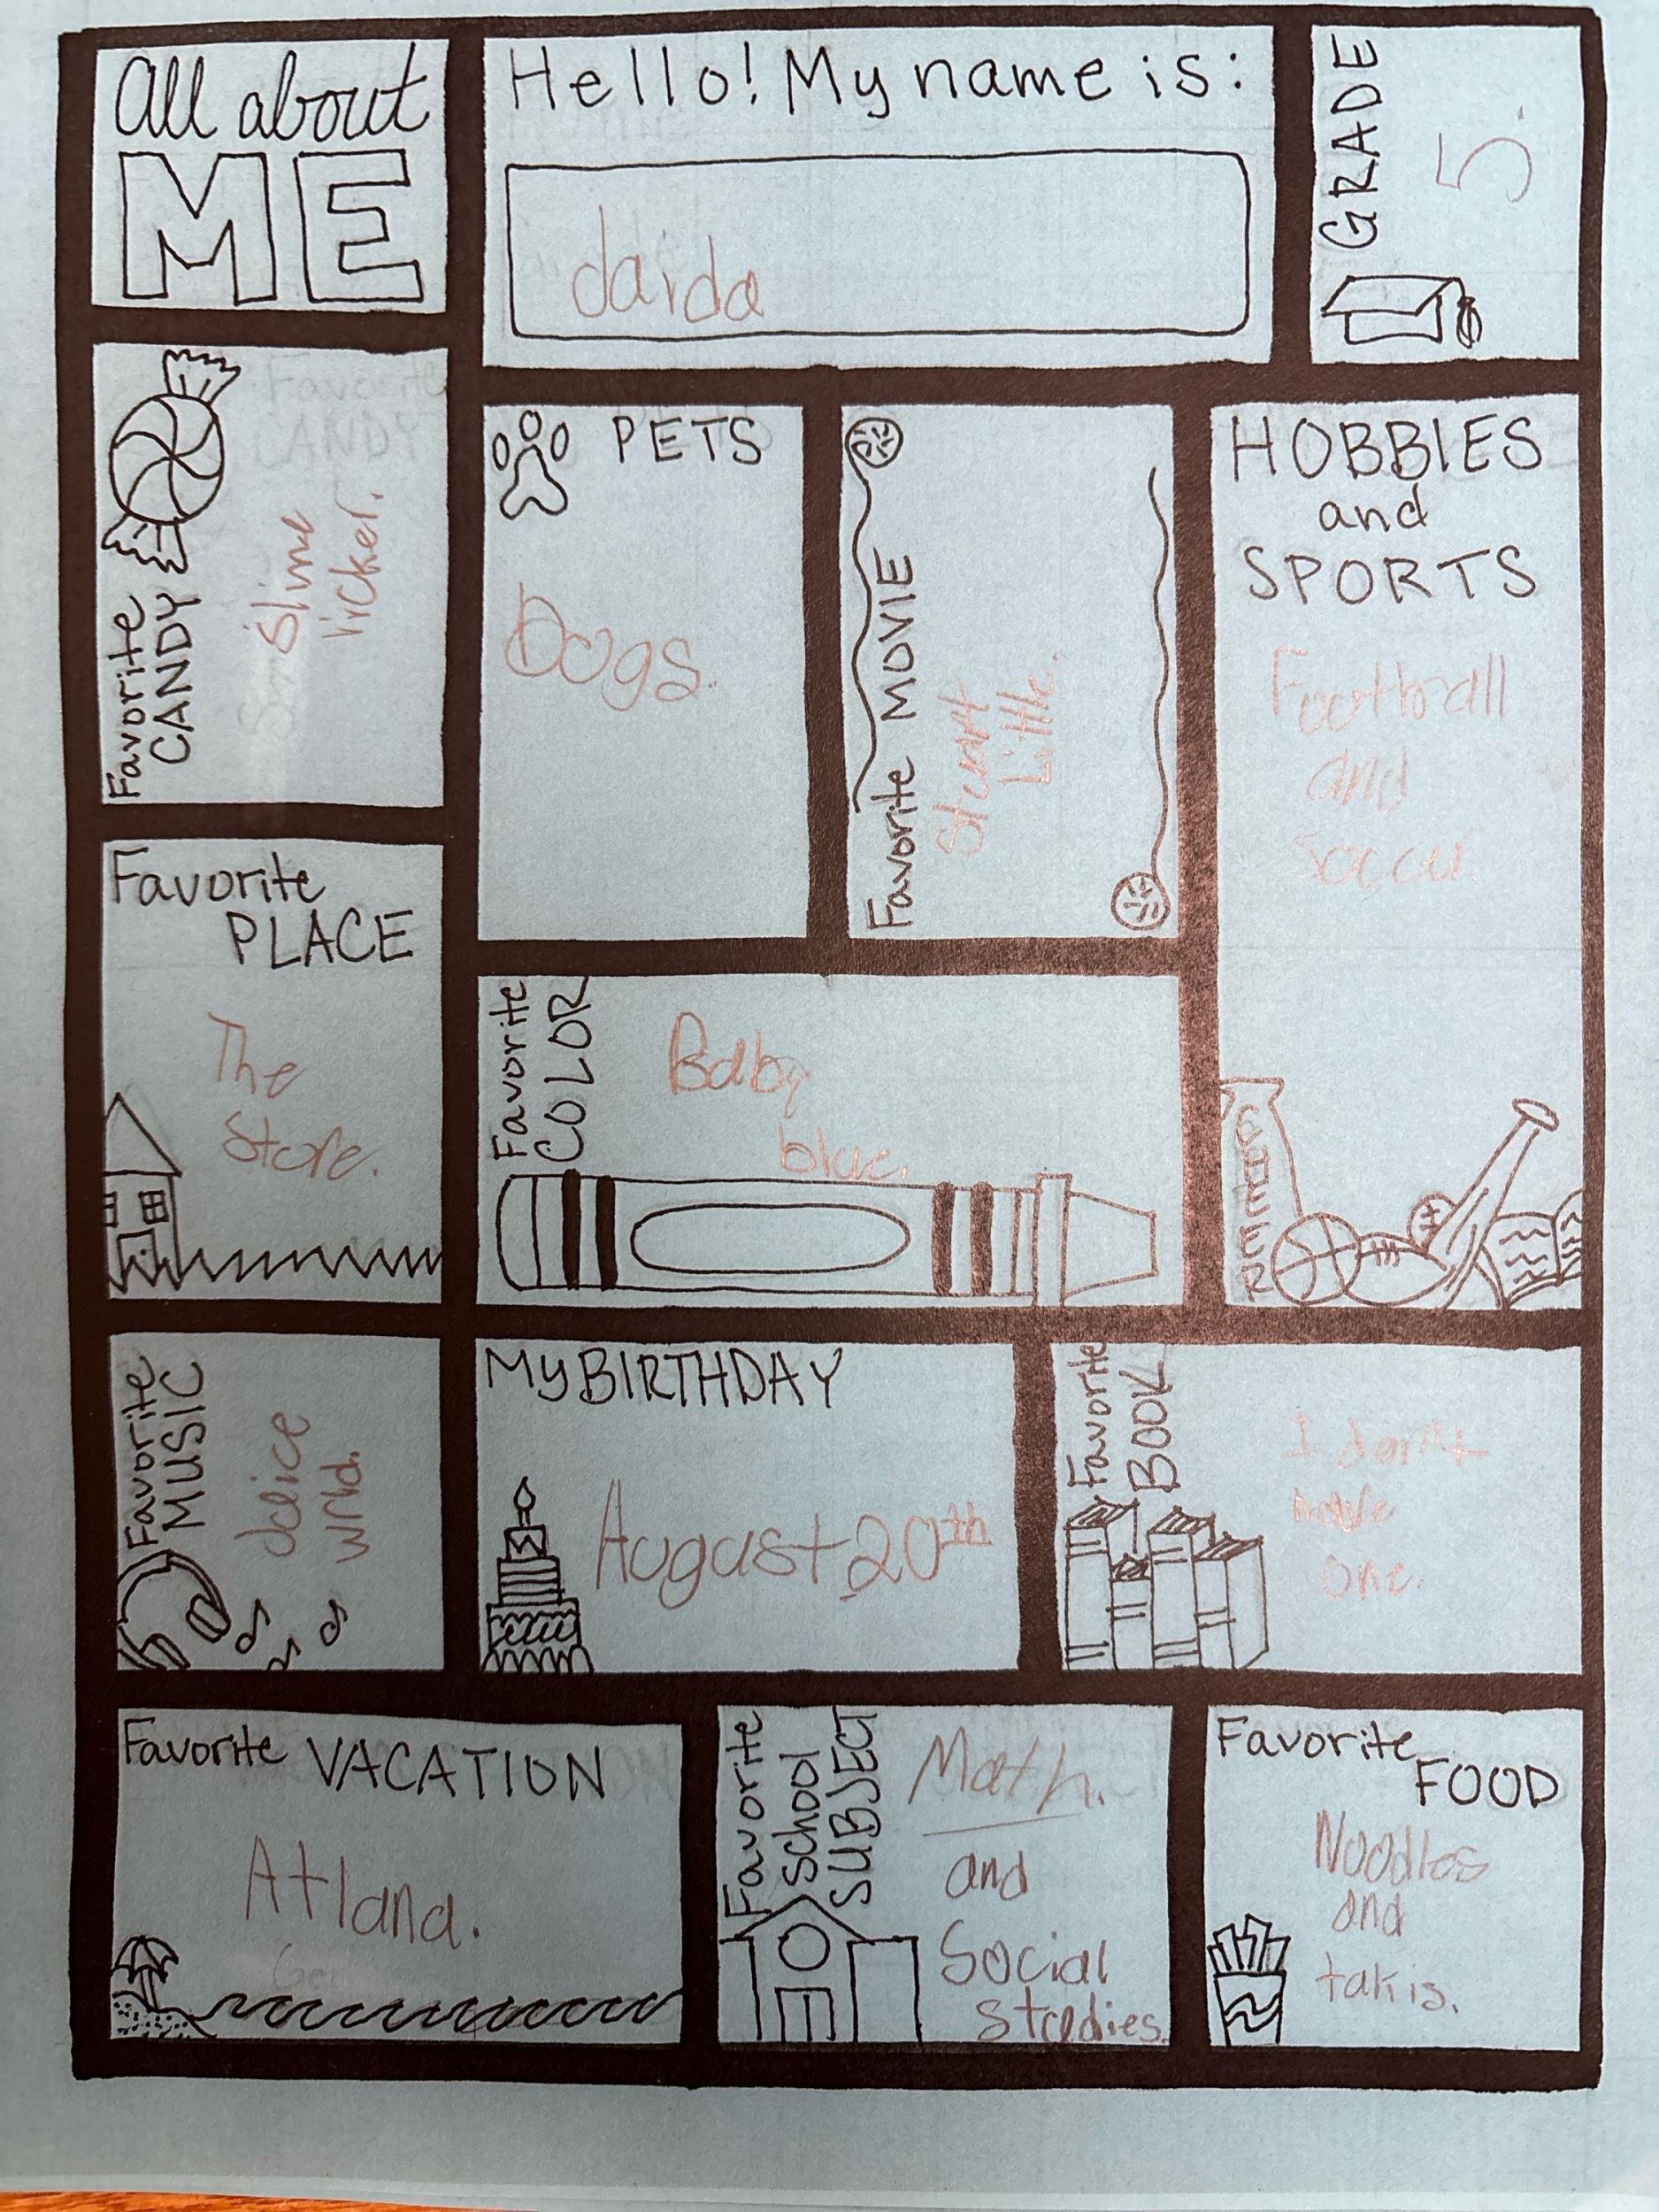 All about
ME
Hello! My name is:
darda
GRADE
5.
Favorite
CANDY
Slime
licker.
PETS
Dogs.
Favorite MOVIE
Stuart
Little.
HOBBIES
and
SPORTS
Football
and
Soccer.
Favorite
PLACE
The
Store.
Favorite
COLOR
Baby
blue.
Favorite
MUSIC
Jelice
wrld.
My BIRTHDAY
August 20th
Favorite
BOOK
I don't
have
one.
Favorite VACATION
Atlana.
Favorite
school
SUBJECT
Math.
and
Social
studies.
Favorite
FOOD
Noodles
and
takis.